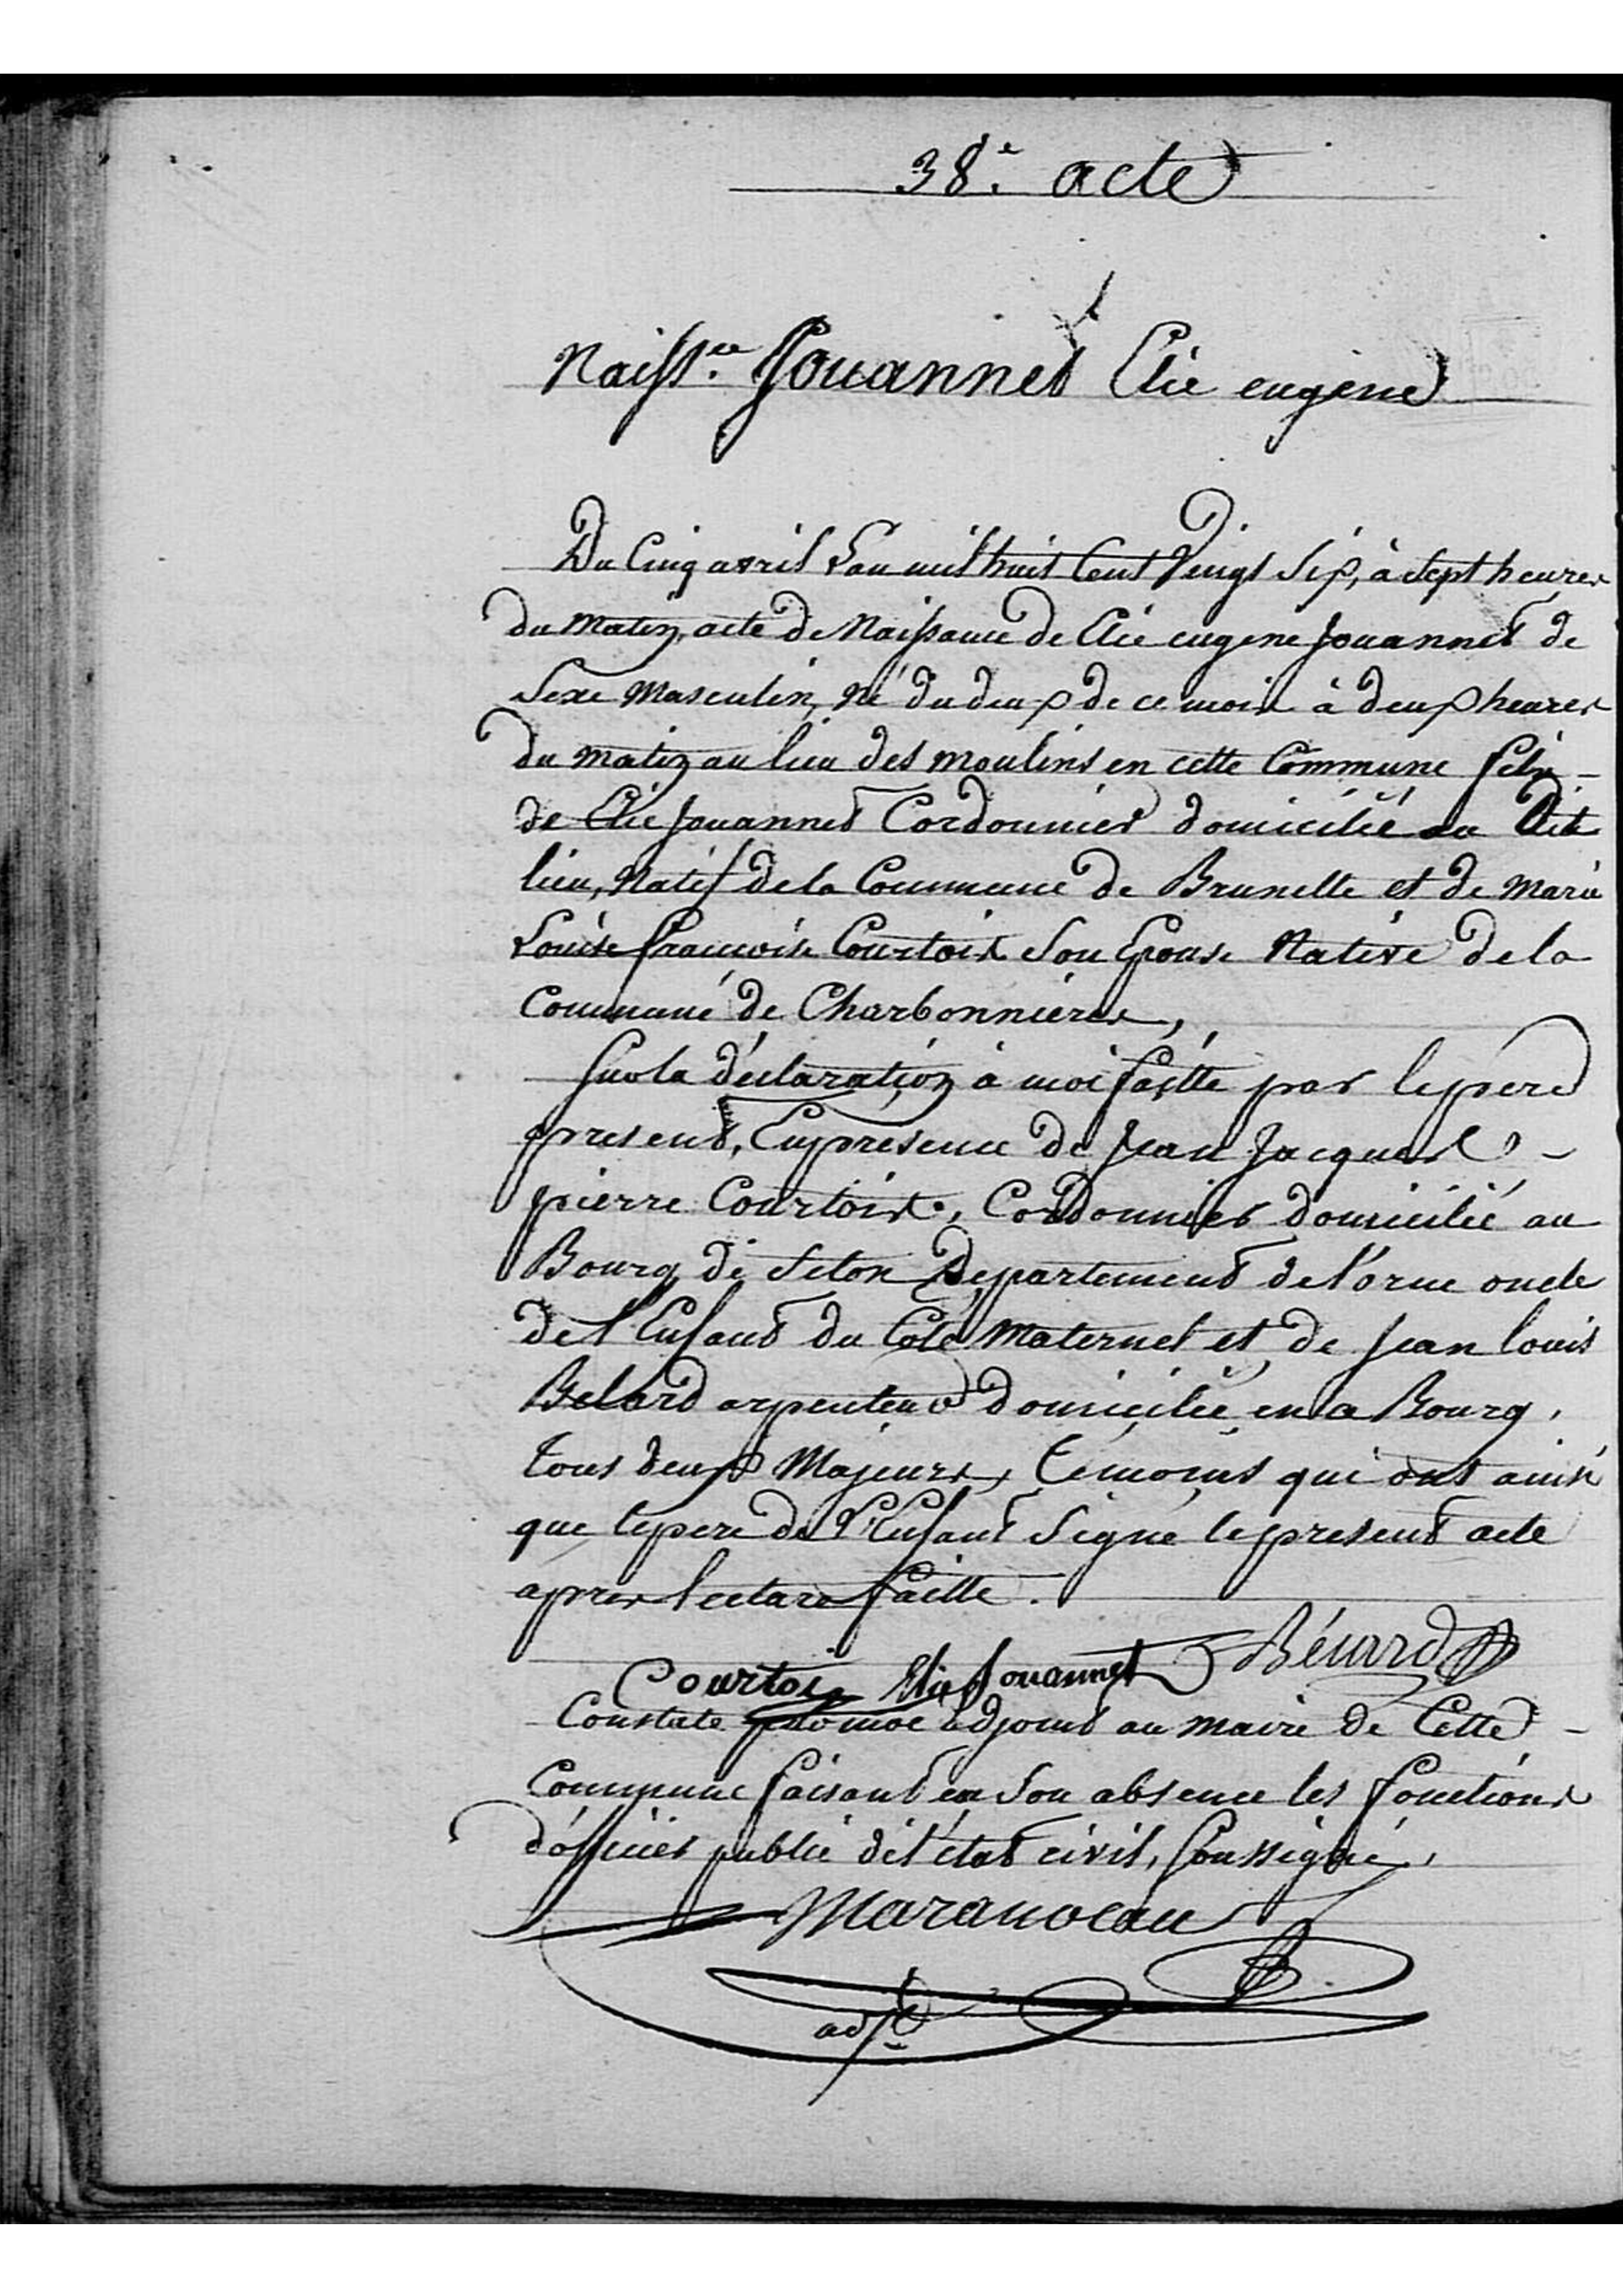 38.e acte
Naiss.ce Jouannet Elie eugene
Du Cinq avril L'an mil huit Cent Vingt Six, à Sept heures
du matin, acte de Naissance de Elie eugene Jouannet de
Sexe Masculin, Né du deux de ce mois à deux heures
du matin au lieu des moulins en cette Commune fils
de Elie Jouannet Cordonnier domicilié au Dit
lieu, Natif de la Commune de Brunelle et de Marie
Louise francoise Courtois Son Epouse Native de la
Commune de Charbonnieres,
Sur la déclaration à moi faitte par le pere
present, En presence de Jean Jacques
pierre Courtois, Cordonnier domicilié au
Bourg de Seton Departement de l'orne oncle
de l'Enfant du Coté Maternel et de Jean louis
arpenteur domicilié en ce Bourg,
tous deux Majeurs, Témoins qui ont ainsi
que le pere de l'Enfant Signé le present acte
apres lecture faitte.
Courtois Elie Jouannet
Constaté par moi adjoint au maire de Cette
Commune faisant en Son absence les fonctions
d'officier public de l'état civil, Soussigné,
adj.t